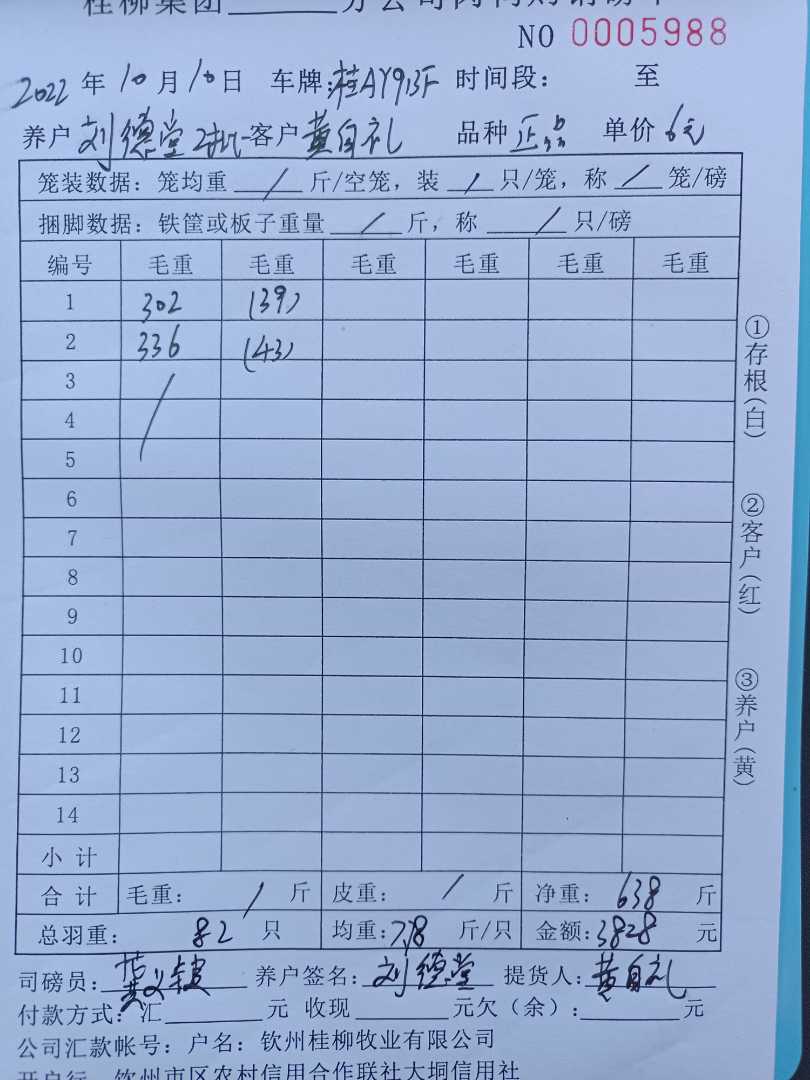 桂柳集团______分公司肉鸭购销磅单
NO 0005988
2022 年 10 月 10 日 车牌:桂AY913F 时间段: 至
养户 刘德堂 客户 黄自礼 品种 正品 单价 6元
笼装数据: 笼均重 / 斤/空笼, 装 / 只/笼, 称 / 笼/磅
捆脚数据: 铁筐或板子重量 / 斤, 称 / 只/磅
编号 毛重 毛重 毛重 毛重 毛重 毛重
1 302 (39)
2 336 (43)
3 /
4
5
6
7
8
9
10
11
12
13
14
小 计
合 计 毛重: / 斤 皮重: / 斤 净重: 638 斤
总羽重: 82 只 均重: 7.78 斤/只 金额: 3828 元
司磅员: 黄 养户签名: 刘德堂 提货人: 黄自礼
付款方式: 汇________元 收现________元欠(余):________元
公司汇款帐号: 户名: 钦州桂柳牧业有限公司
开户行 钦州市区农村信用合作联社大垌信用社
①存根(白)
②客户(红)
③养户(黄)